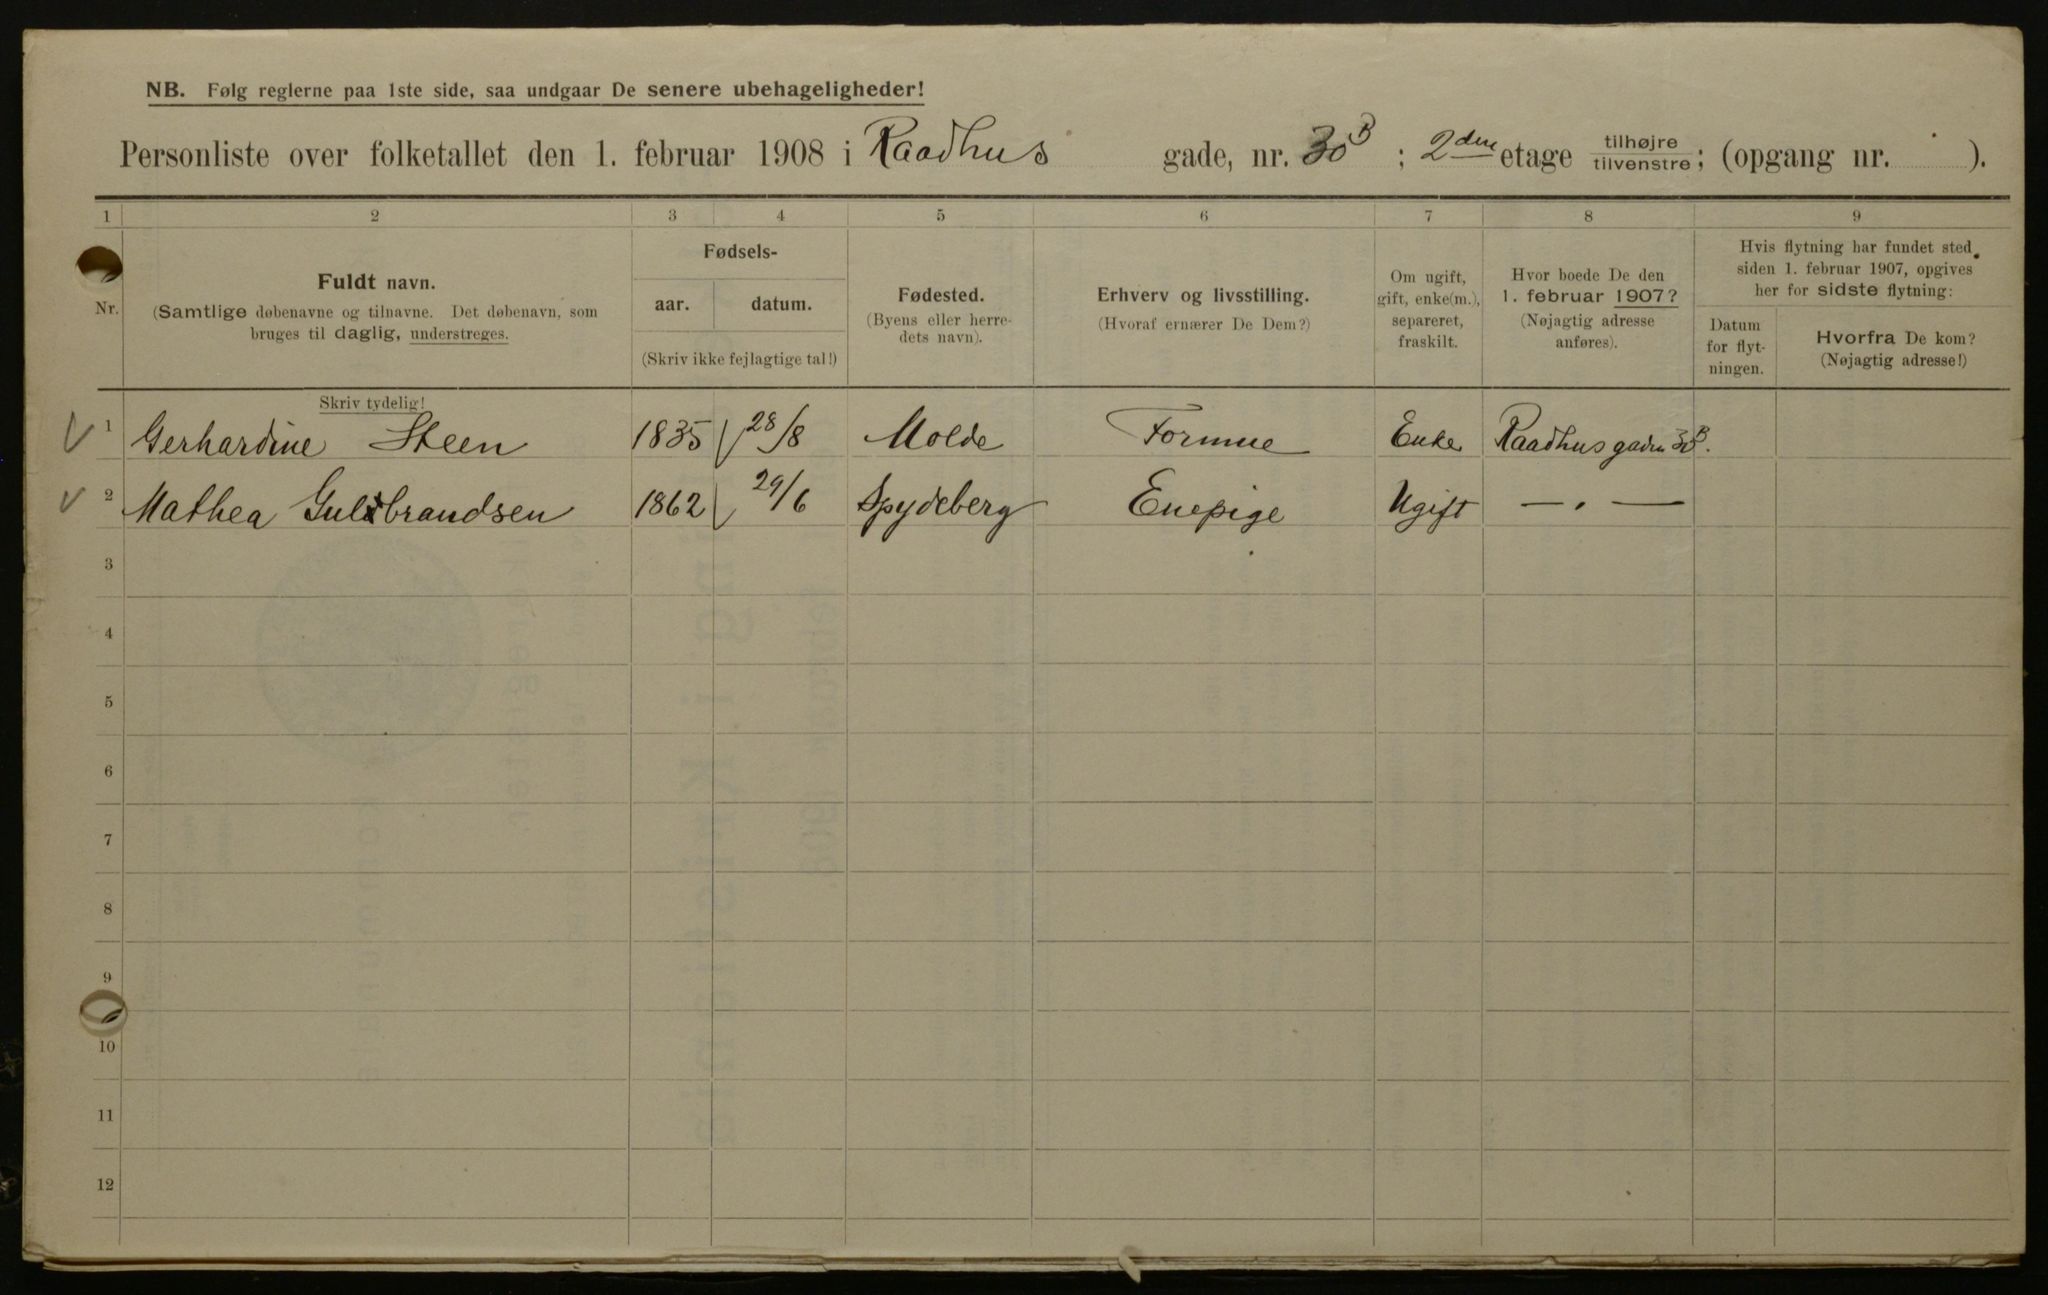 NB. Følg reglerne paa 1ste side, saa undgaar De senere ubehageligheder!
Personliste over folketallet den 1. februar 1908 i Raadhus gade, nr. 30B; 2den etage tilhøjre tilvenstre; (opgang nr. ).
1 2 3 4 5 6 7 8 9
Nr.
Fuldt navn.
(Samtlige døbenavne og tilnavne. Det døbenavn, som
bruges til daglig, understreges.
Fødsels-
aar. datum.
(Skriv ikke fejlagtige tal!)
Fødested.
(Byens eller herre-
dets navn).
Erhverv og livsstilling.
(Hvoraf ernærer De Dem?)
Om ugift,
gift, enke(m.),
separeret,
fraskilt.
Hvor boede De den
1. februar 1907?
(Nøjagtig adresse
anføres).
Hvis flytning har fundet sted
siden 1. februar 1907, opgives
her for sidste flytning:
Datum
for flyt-
ningen.
Hvorfra De kom?
(Nøjagtig adresse!)
Skriv tydelig!
1 Gerhardine Steen 1835 28/8 Molde Formue Enke Raadhusgaden 30B.
2 Mathea Gulbrandsen 1862 29/6 Spydeberg Enepige Ugift — " —
3
4
5
6
7
8
9
10
11
12